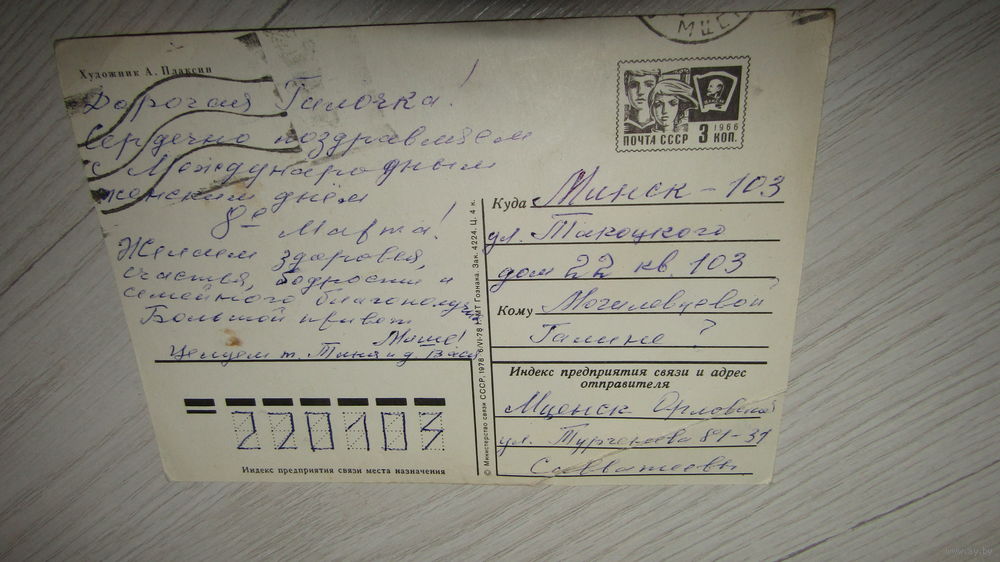 Художник А. Плаксин
Дорогая Галочка!
Сердечно поздравляем
с Международным
женским днём
8е Марта!
Желаем здоровья,
счастья, бодрости и
семейного благополучия
Большой привет
Мише!
Целуем т. Тина и д. Вася
МЦЕ
1966
ПОЧТА СССР 3 КОП.
Куда Минск-103
ул. Пикоцкого
дом 22 кв. 103
Кому Могилевцевой
Галине ?
Индекс предприятия связи и адрес
отправителя
Мценск Орловской
ул. Тургенева 81-31
Савватеевы
220103
Индекс предприятия связи места назначения
© Министерство связи СССР, 1978 6/VI-78 г. МТ Гознака. Зак. 4224. Ц. 4 к.
www.ay.by